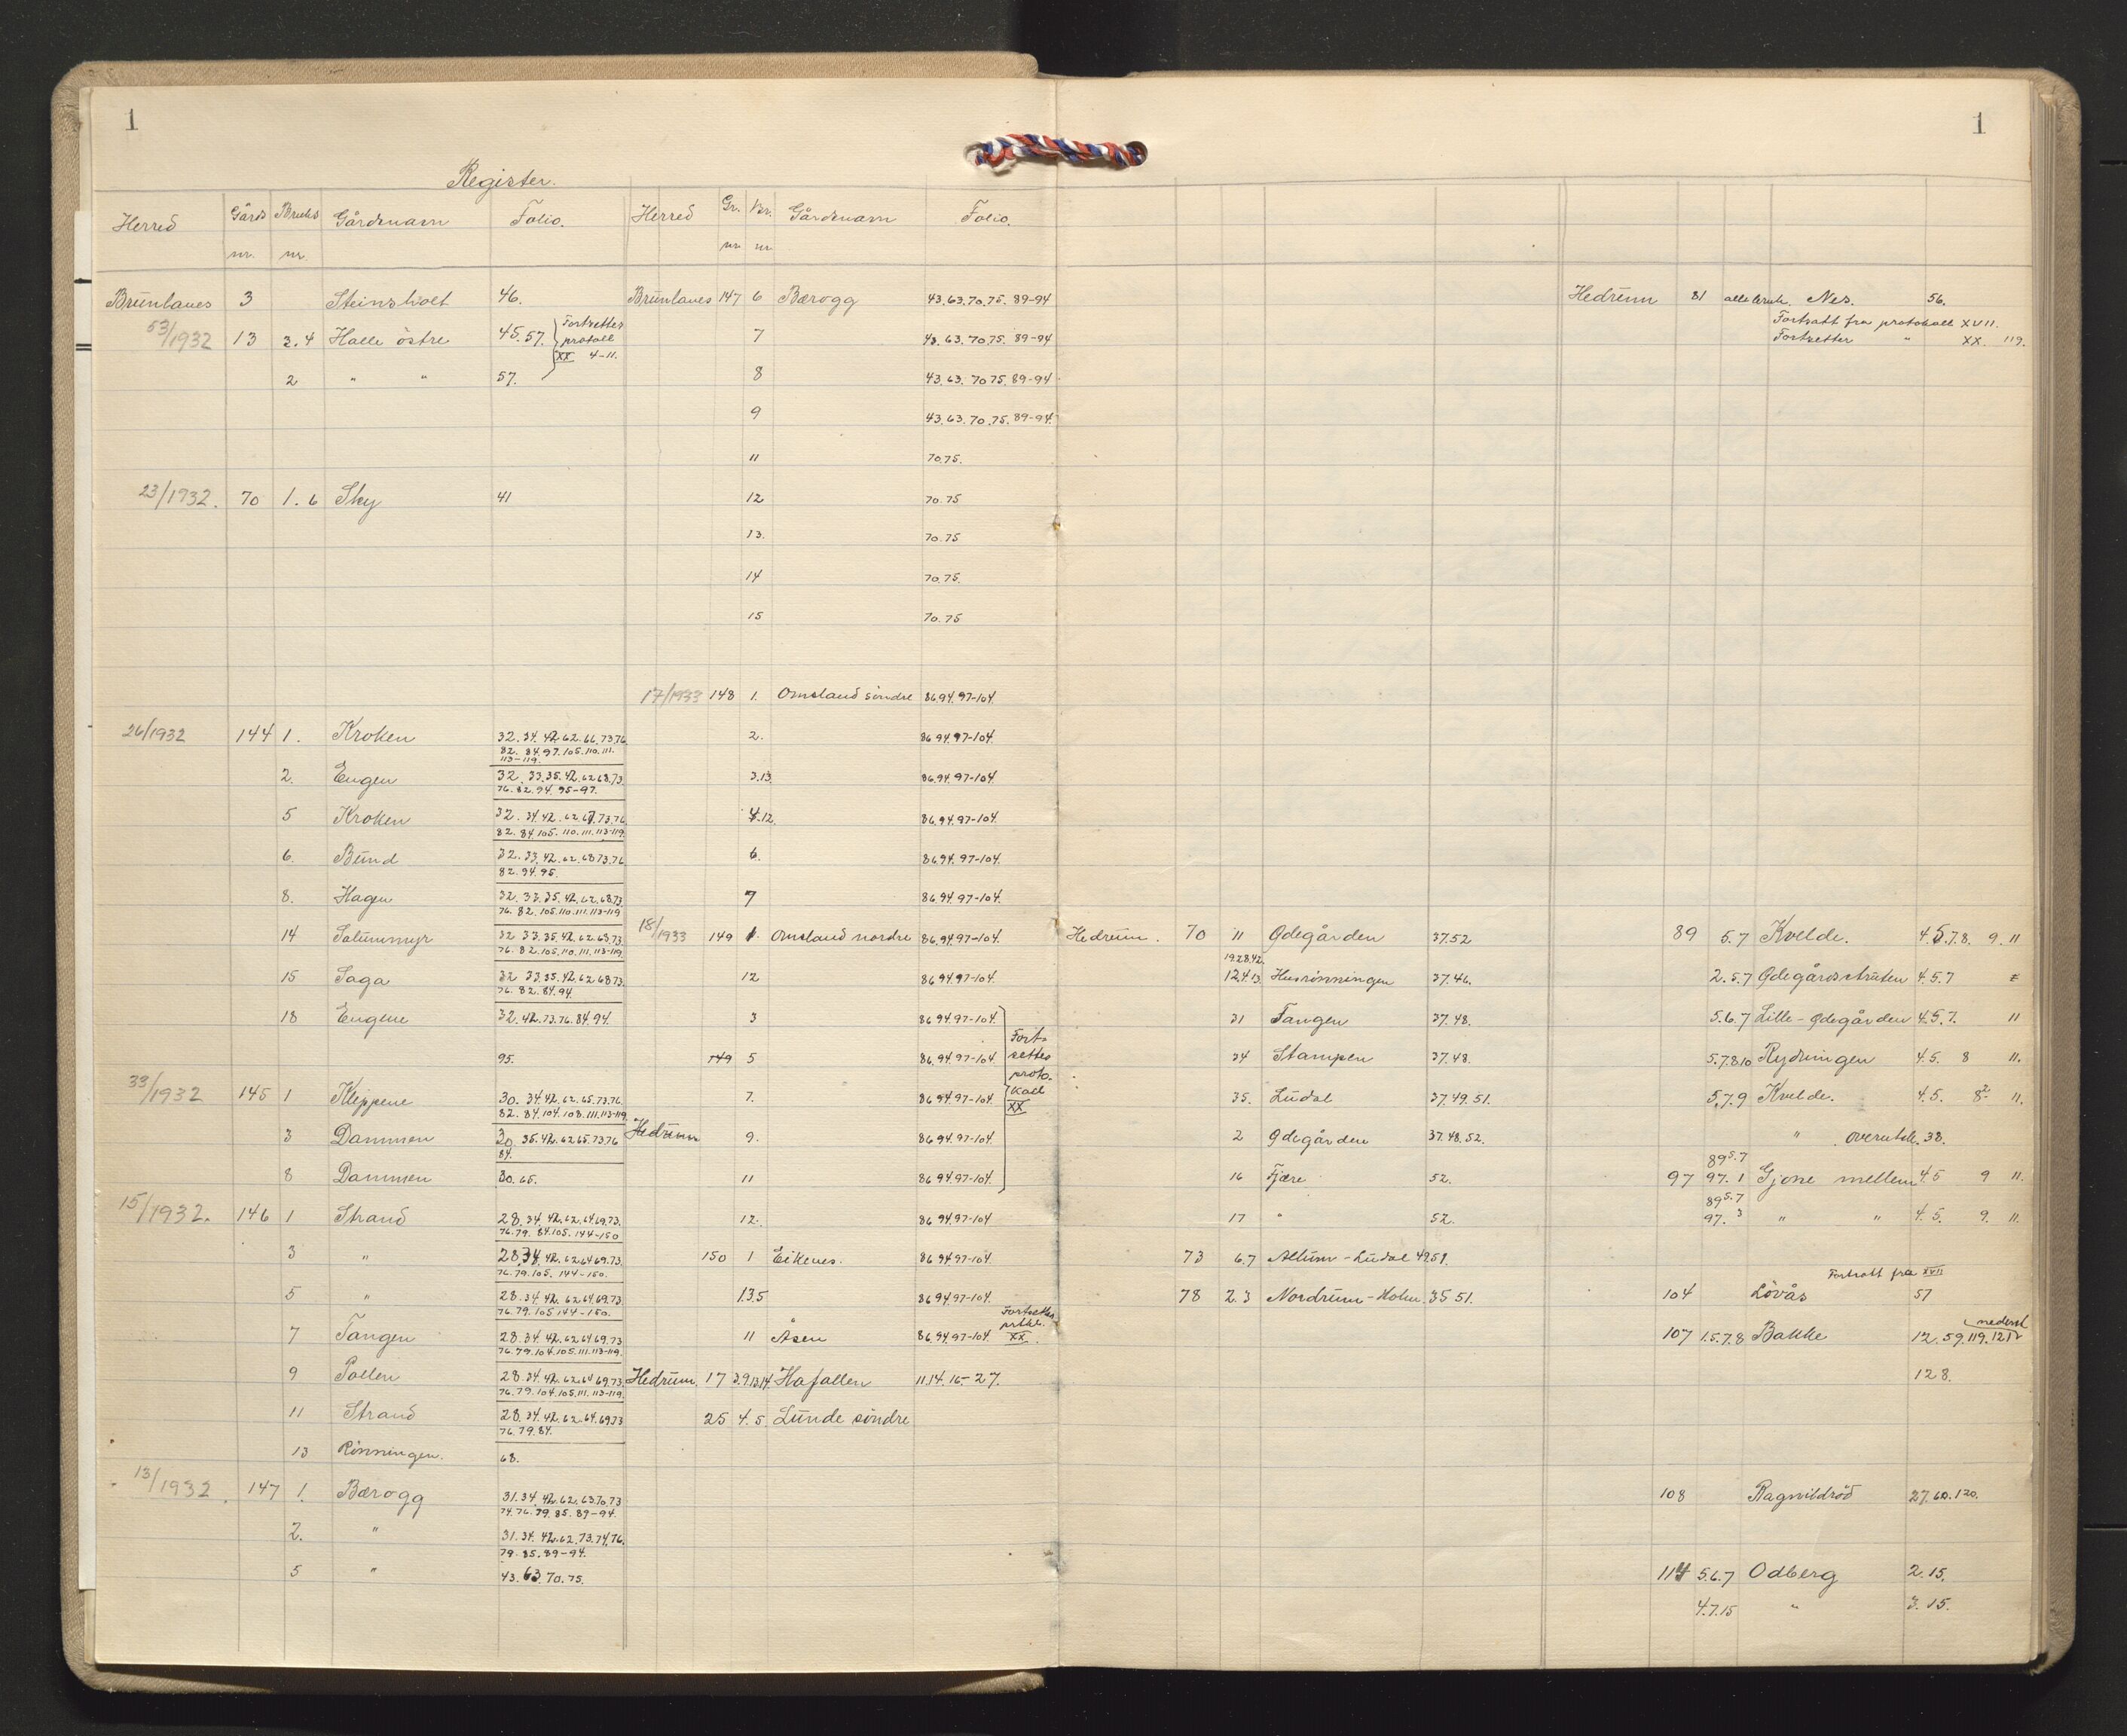 1
Register.
Herred Gårds nr. Bruks nr. Gårdsnavn Folio.
Brunlanes 3 Steinsholt 46.
53/1932 13 2.4 Halle östre 45.57. Fortsetter protoll XX 4-11.
2 " " 57.
23/1932. 70 1.6 Sky 41
26/1932 144 1. Kroken 32.34.42.62.66.73.76
82. 84.97.105.110.111.
113-119.
2. Engen 32.33.35.42.62.68.73.
76.82.94.95-97.
5 Kroken 32.34.42.62.67.73.76
82.84.105.110.111.113-119.
6. Bund 32.33.42.62.68.73.76
82.94.95.
8. Hagen 32.33.35.42.62.68.73.
76.82.105.110.111.113-119
14 Solummyr 32 33.35.42.62.63.73.
76.82.105.110.111.113-119
15 Saga 32 33.35.42.62.68.73.
76.82.84.94.
18 Engene 32.42.73.76.84.94.
95.
33/1932 145 1 Kleppene 30.34.42.62.65.73.76.
82.84.104.108.111.113-119.
3 Dammen 30.35.42.62.65.73.76
84.
8 Dammen 30.65.
15/1932. 146 1 Strand 28.34.42.62.64.69.73.
76.79.84.105.144-150
3 " 28.34.42.62.64.69.73.
76.79.105.144-150.
5 " 28.34.42.62.64.69.73
76.79.105.144-150.
7 Tangen 28.34.42.62.64.69.73
76.79.104.105.111.113-119.
9 Pollen 28.34.42.62.64.69.73.
76.79.104.105.111.113-119.
11 Strand 28.34.42.62.64.69.73
76.79.84.
13 Rönningen. 68.
13/1932. 147 1. Bærogg 31.34.42.62.63.70.73
74.76.79.85.89-94.
2. " 31.34.42.62.73.74.76.
79.85.89-94.
5 " 43.63.70.75.
Herred Gr. nr Br. nr Gårdsnavn Folio.
Brunlanes 147 6 Bærogg 43.63.70.75. 89-94
7 43.63.70.75. 89-94
8 43.63.70.75. 89-94.
9 43.63.70.75. 89-94.
11 70.75.
12 70.75
13. 70.75
14 70.75.
15 70.75
17/1933 148 1. Omsland söndre 86.94.97-104.
2. 86.94.97-104.
3.13. 86.94.97-104.
4.12. 86.94.97-104.
6. 86.94.97-104.
7 86.94.97-104.
18/1933 149 1. Omsland nordre 86.94.97-104.
12 86.94.97-104.
3 86.94.97-104.
149 5 86.94.97-104
7. 86.94.97-104.
Fortsettes protokoll XX
Hedrum 9. 86.94.97-104.
11 86.94.97-104.
12. 86.94.97-104
150 1 Eikenes. 86.94.97-104.
13.5 86.94.97-104.
11 Åsen 86.94.97-104. Fortsettes prtkl. XX.
Hedrum. 17 3.9.13.14 Hafallen 11.14.16-27.
25 4.5. Lunde söndre
1
Hedrum. 70 11 Ødegården 37.52
19.28.42.
12.4.13. Husrönningen 37.46.
31 Tangen 37.48.
34 Stampen 37.48.
35. Ludal 37.49.51.
2 Ødegården 37.48.52.
16 Fjære 52.
17 " 52.
73 6.7 Allum-Ludal 49.51.
78 2.3 Nordrum-Holm. 35 51.
Hedrum 81 alle bruk. Nes. 56.
Fortsatt fra protokoll XVII.
Fortsetter " XX. 119.
89 5.7 Kvelde. 4.5.7.8. 9. 11
2.5.7 Ødegårdsstruten 4.5.7
5.6.7 Lille-Ødegården 4.5.7. 11
5.7.8.10 Rydningen 4.5. 8 11.
5.7.9 Kvelde. 4.5. 8² 11.
" overutsk. 38.
89 5.7
97 97.1 Gjone mellem 4.5 9 11.
89 5.7
97. 3 " " 4.5. 9. 11.
Fortsatt fra XVII
104 Lövås 57
107 1.5.7.8 Bakke 12.59.119.121 nederst
128.
108 Ragnvildröd 27.60.120.
114 5.6.7 Odberg 2.15.
4.7.15 " 3.15.